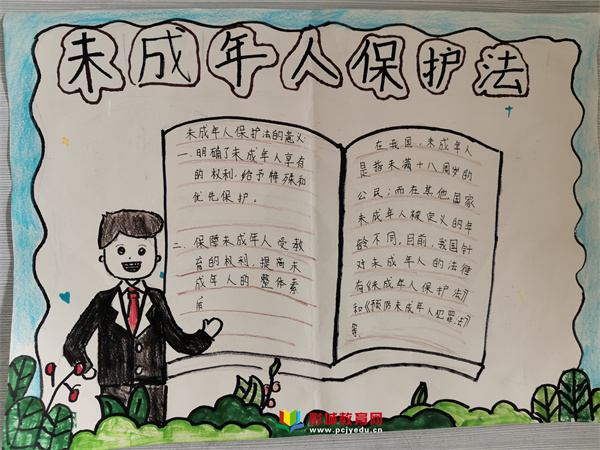 未成年人保护法
未成年人保护法的意义
一、明确了未成年人享有
的权利,给予特殊和
优先保护。
二、保障未成年人受教
育的权利,提高未
成年人的整体素
质
在我国,未成年人
是指未满十八周岁的
公民;而在其他国家
未成年人被定义的年
龄不同,目前,我国针
对未成年人的法律
有《未成年人保护法》
和《预防未成年人犯罪法》
等。
彭城教育网
www.pcjyedu.cn